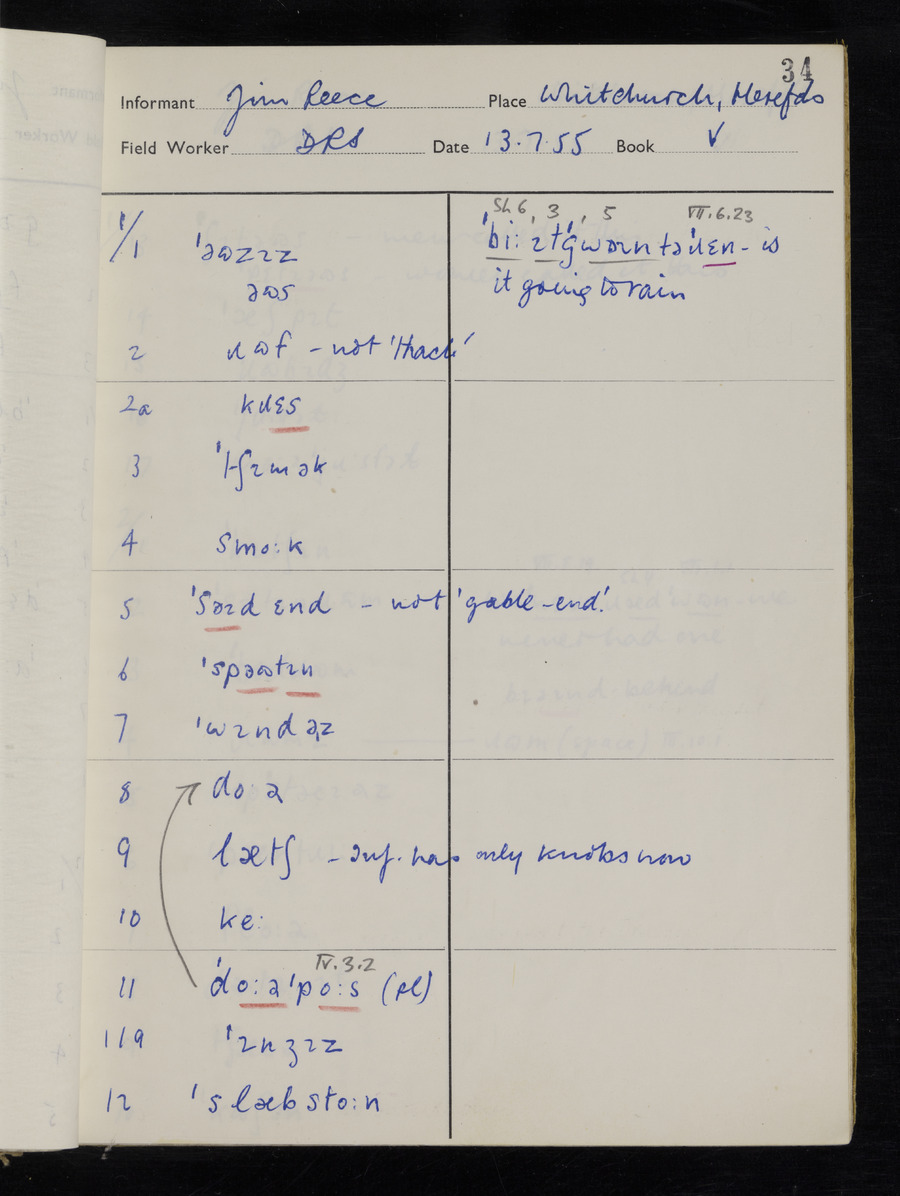 34
Informant Jim Reece Place Whitchurch, Herefds
Field Worker DRS Date 13.7.55 Book V
1/1 'əɷzɪz
əɷs
2 ɹɷf – not 'thack'
2a kɹɛs
3 'tʃɪmək
4 smo:k
5 'səɪd ɛnd – not 'gable-end'.
6 'spəɷtɪn
7 'wɪndəɻz
8 do:ə
9 lætʃ – Inf. has only knobs now
10 ke:
IV.3.2
11 'do:ə'po:s (pl)
11a 'ɪnʒɪz
12 'slæbsto:n
Sh 6, 3, 5 VII.6.23
'bi: ɪt'gwəɪn tə'ɹɛn – is
it going to rain